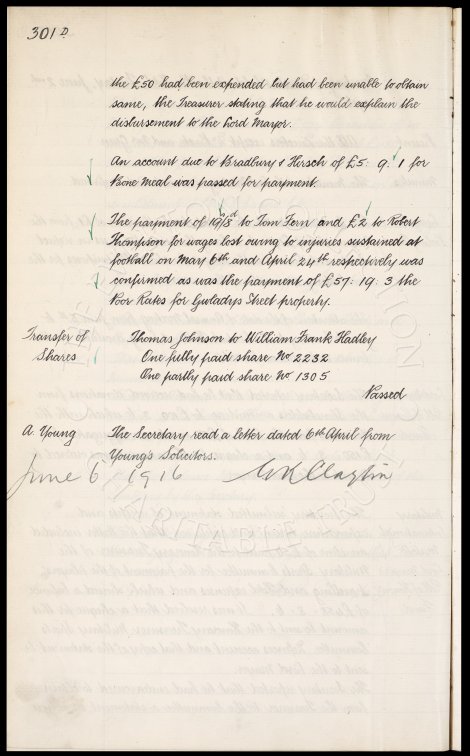 301 D
the £50 had been expended but had been unable to obtain
same, the Treasurer stating that he would explain the
disbursement to the Lord Mayor.
An account due to Bradbury & Hirsch of £5: 9: 1 for
Bone Meal was passed for payment.
The payment of 19/3d to Tom Fern and £2 to Robert
Thompson for wages lost owing to injuries sustained at
football on May 6th and April 24th respectively was
confirmed as was the payment of £57: 19: 3 the
Poor Rates for Gwladys Street property.
Transfer of Thomas Johnson to William Frank Hadley
Shares One fully paid share No 2232
One partly paid share No 1305
Passed
A. Young The Secretary read a letter dated 6th April from
Young's Solicitors.
June 6 / 1916 Clayton